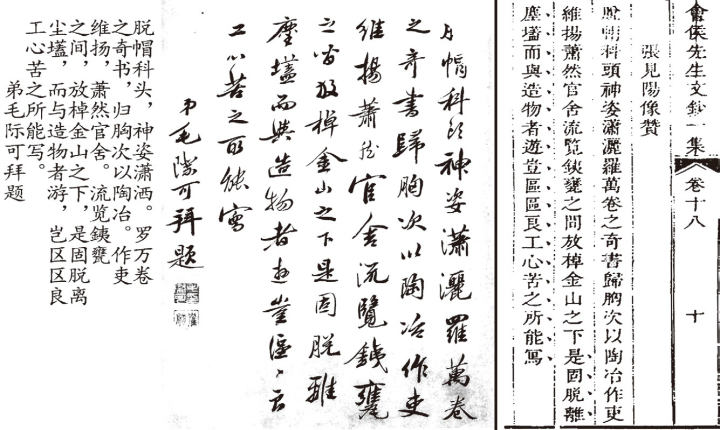 會侯先生文鈔一集 卷十八 十
張見陽像贊
脫帽科頭神姿瀟灑羅萬卷之奇書歸胸次以陶冶作吏
維揚蕭然官舍流覽銕甕之間放棹金山之下是固脫離
塵壒而與造物者遊豈區區良工心苦之所能寫
脫帽科頭神姿瀟灑羅萬卷
之奇書歸胸次以陶冶作吏
維揚蕭然官舍流覽銕甕
之間放棹金山之下是固脫離
塵壒而與造物者遊豈區〻良
工心苦之所能寫
弟毛際可拜題
脱帽科头，神姿潇洒。罗万卷
之奇书，归胸次以陶冶。作吏
维扬，萧然官舍。流览銕甕
之间，放棹金山之下，是固脱离
尘壒，而与造物者游，岂区区良
工心苦之所能写。
弟毛际可拜题